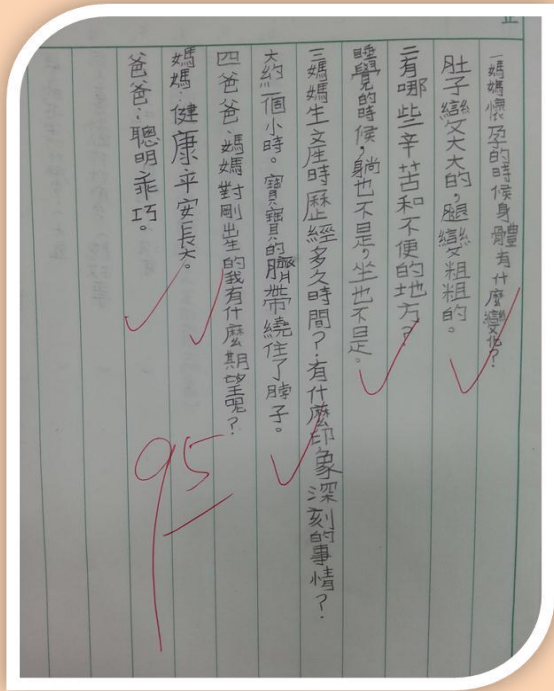 一媽媽懷孕的時候身體有什麼變化？
肚子變大大的，腿變粗粗的。
二有哪些辛苦和不便的地方？
睡覺的時候，躺也不是，坐也不是。
三媽媽生文產時歷經多久時間？有什麼印象深刻的事情？
大約一個小時。寶寶的臍帶繞住了脖子。
四爸爸、媽媽對剛出生的我有什麼期望呢？
媽媽：健康平安長大。
爸爸：聰明乖巧。
95